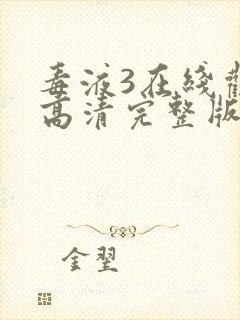 毒液3在线观
高清完整版
金翌